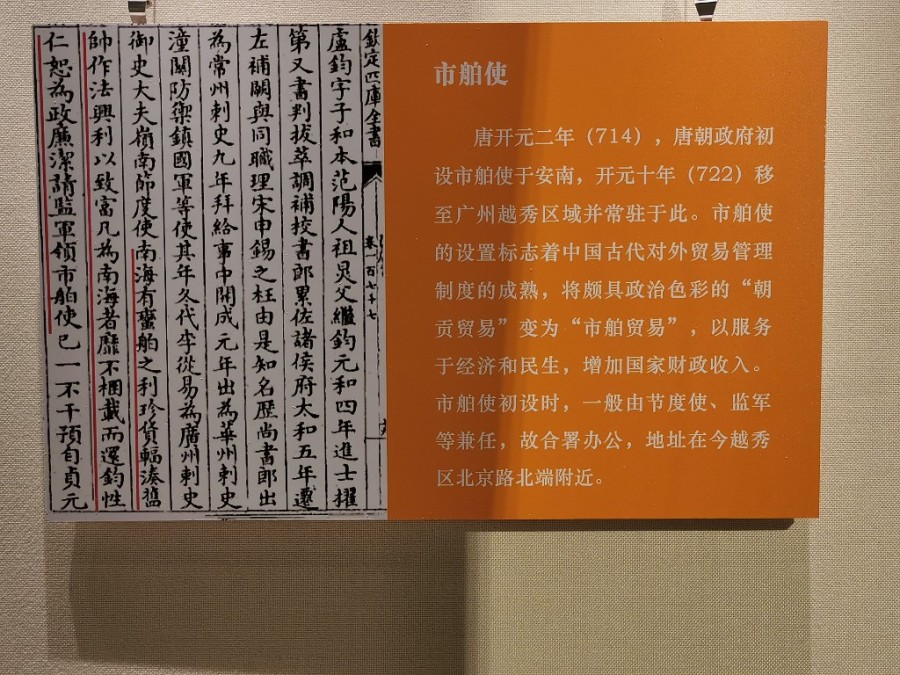 欽定四庫全書
卷一百七十七
盧鈞字子和本范陽人祖炅父繼鈞元和四年進士擢
第又書判拔萃調補校書郎累佐諸侯府太和五年遷
左補闕與同職理宋申錫之枉由是知名歷尚書郎出
為常州刺史九年拜給事中開成元年出為華州刺史
潼關防禦鎮國軍等使其年冬代李從易為廣州刺史
御史大夫嶺南節度使南海有蠻舶之利珍貨輻湊舊
帥作法興利以致富凡為南海者靡不梱載而還鈞性
仁恕為政廉潔請監軍領市舶使已一不干預自貞元
市舶使
唐开元二年（714），唐朝政府初
设市舶使于安南，开元十年（722）移
至广州越秀区域并常驻于此。市舶使
的设置标志着中国古代对外贸易管理
制度的成熟，将颇具政治色彩的“朝
贡贸易”变为“市舶贸易”，以服务
于经济和民生，增加国家财政收入。
市舶使初设时，一般由节度使、监军
等兼任，故合署办公，地址在今越秀
区北京路北端附近。